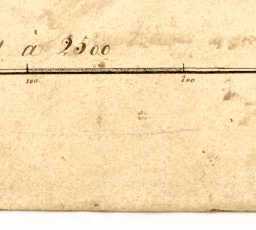 à 2500
100 200